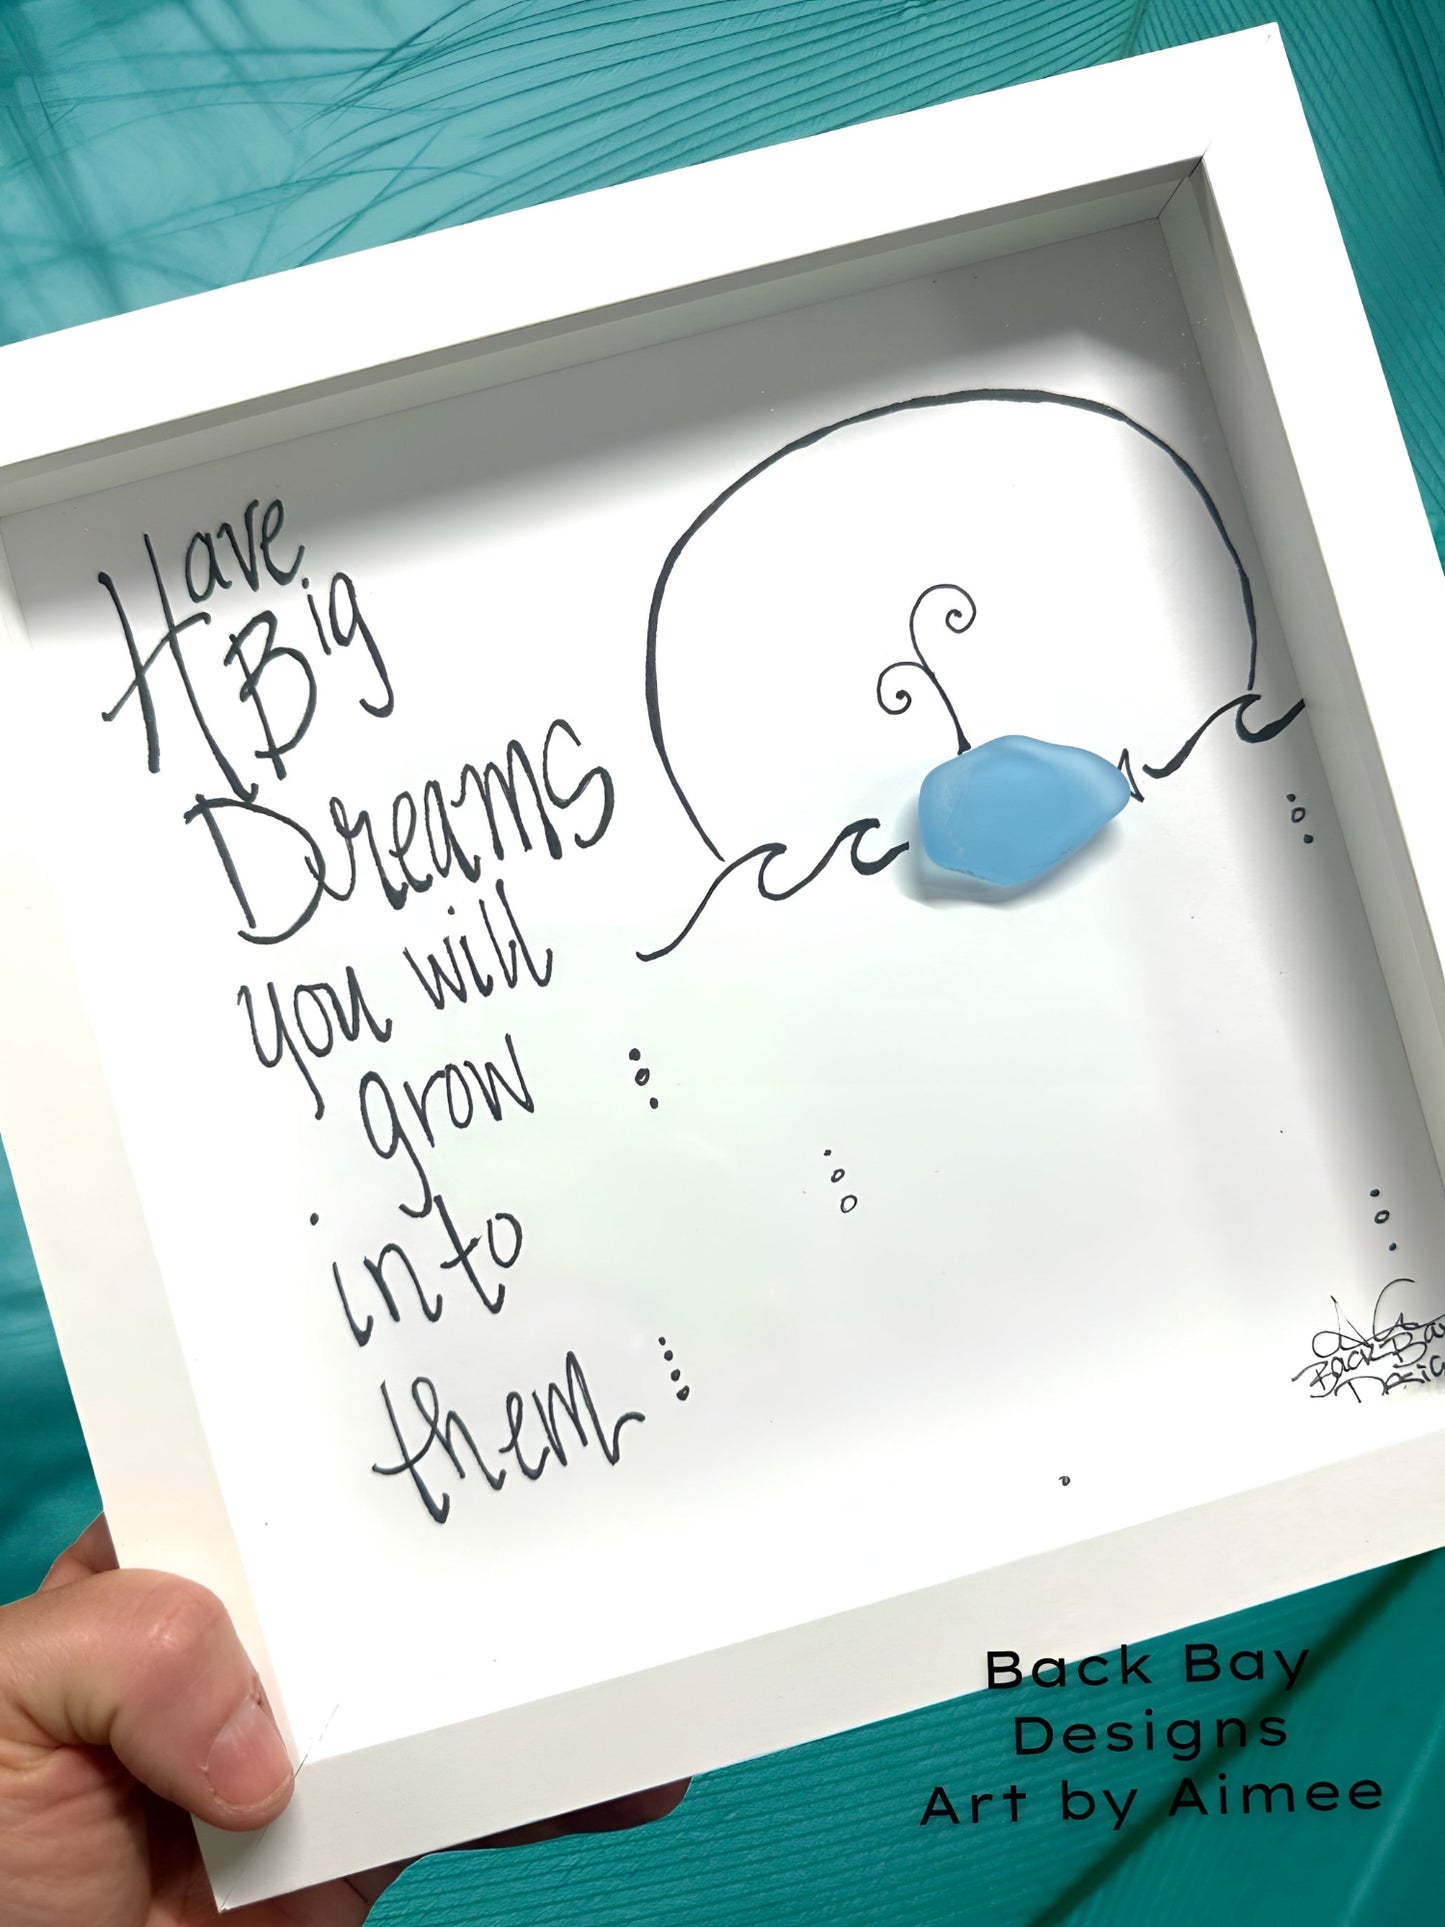 Have
Big
Dreams
you will
grow
into
them
Back Bay
Designs
Back Bay
Designs
Art by Aimee